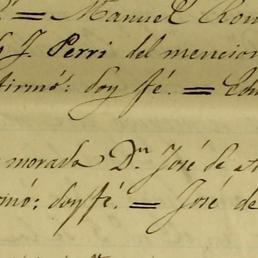 = Manuel Rom
J. Perri del mencion
firmó: doy fé. =
morada Dn José de
mó: doy fé. = José de